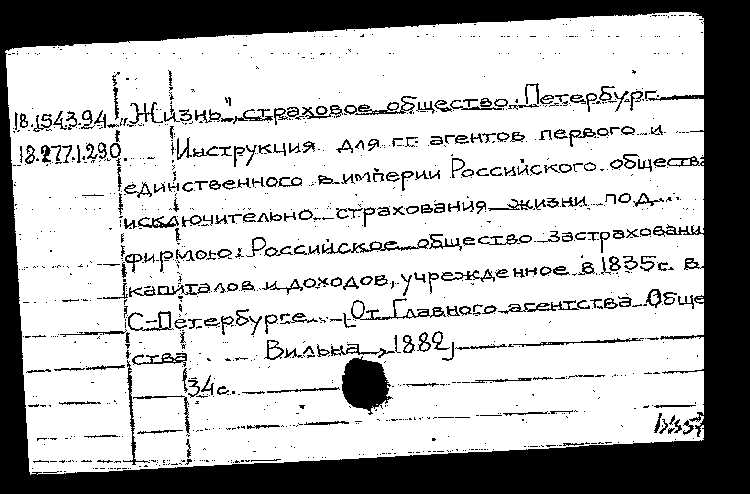 18.1543.94 „Жизнь", страховое общество. Петербург
18.277.1.290. Инструкция для гг. агентов первого и
единственного в империи Российского общества
исключительно страхования жизни под
фирмою: Российское общество застраховани
капиталов и доходов, учрежденное в 1835 г. в
С-Петербурге. [От Главного агентства Обще
ства Вильна, 1882]
34 с.